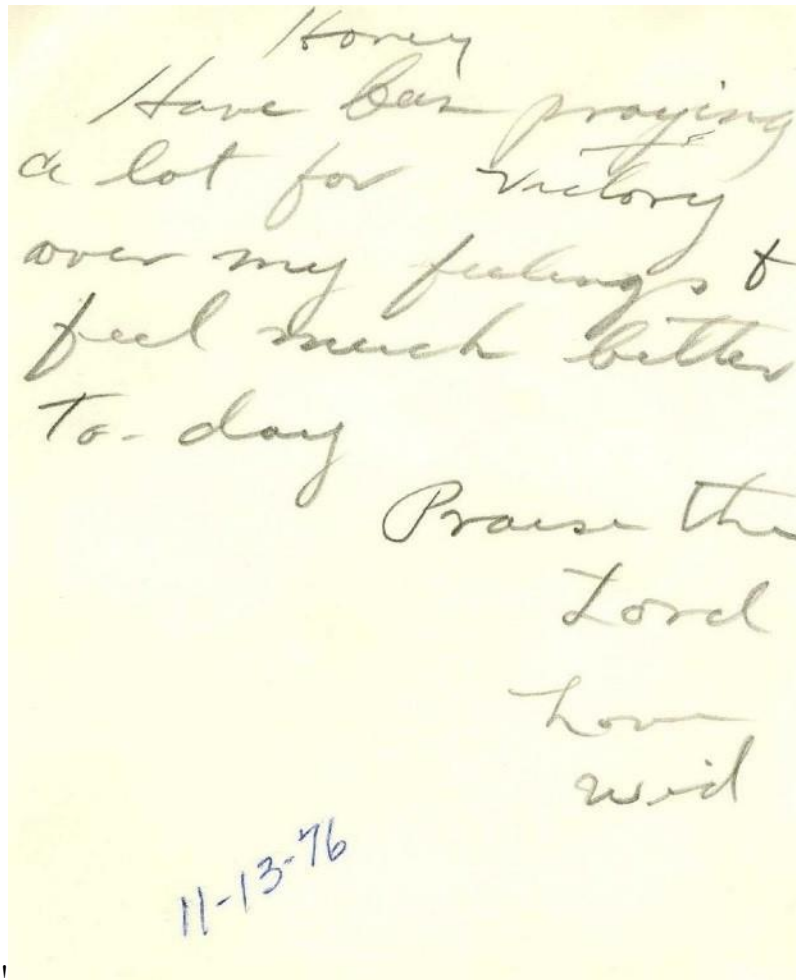 Honey
Have been praying
a lot for victory
over my feelings &
feel much better
To-day
Praise the
Lord
Love
Wid
11-13-76